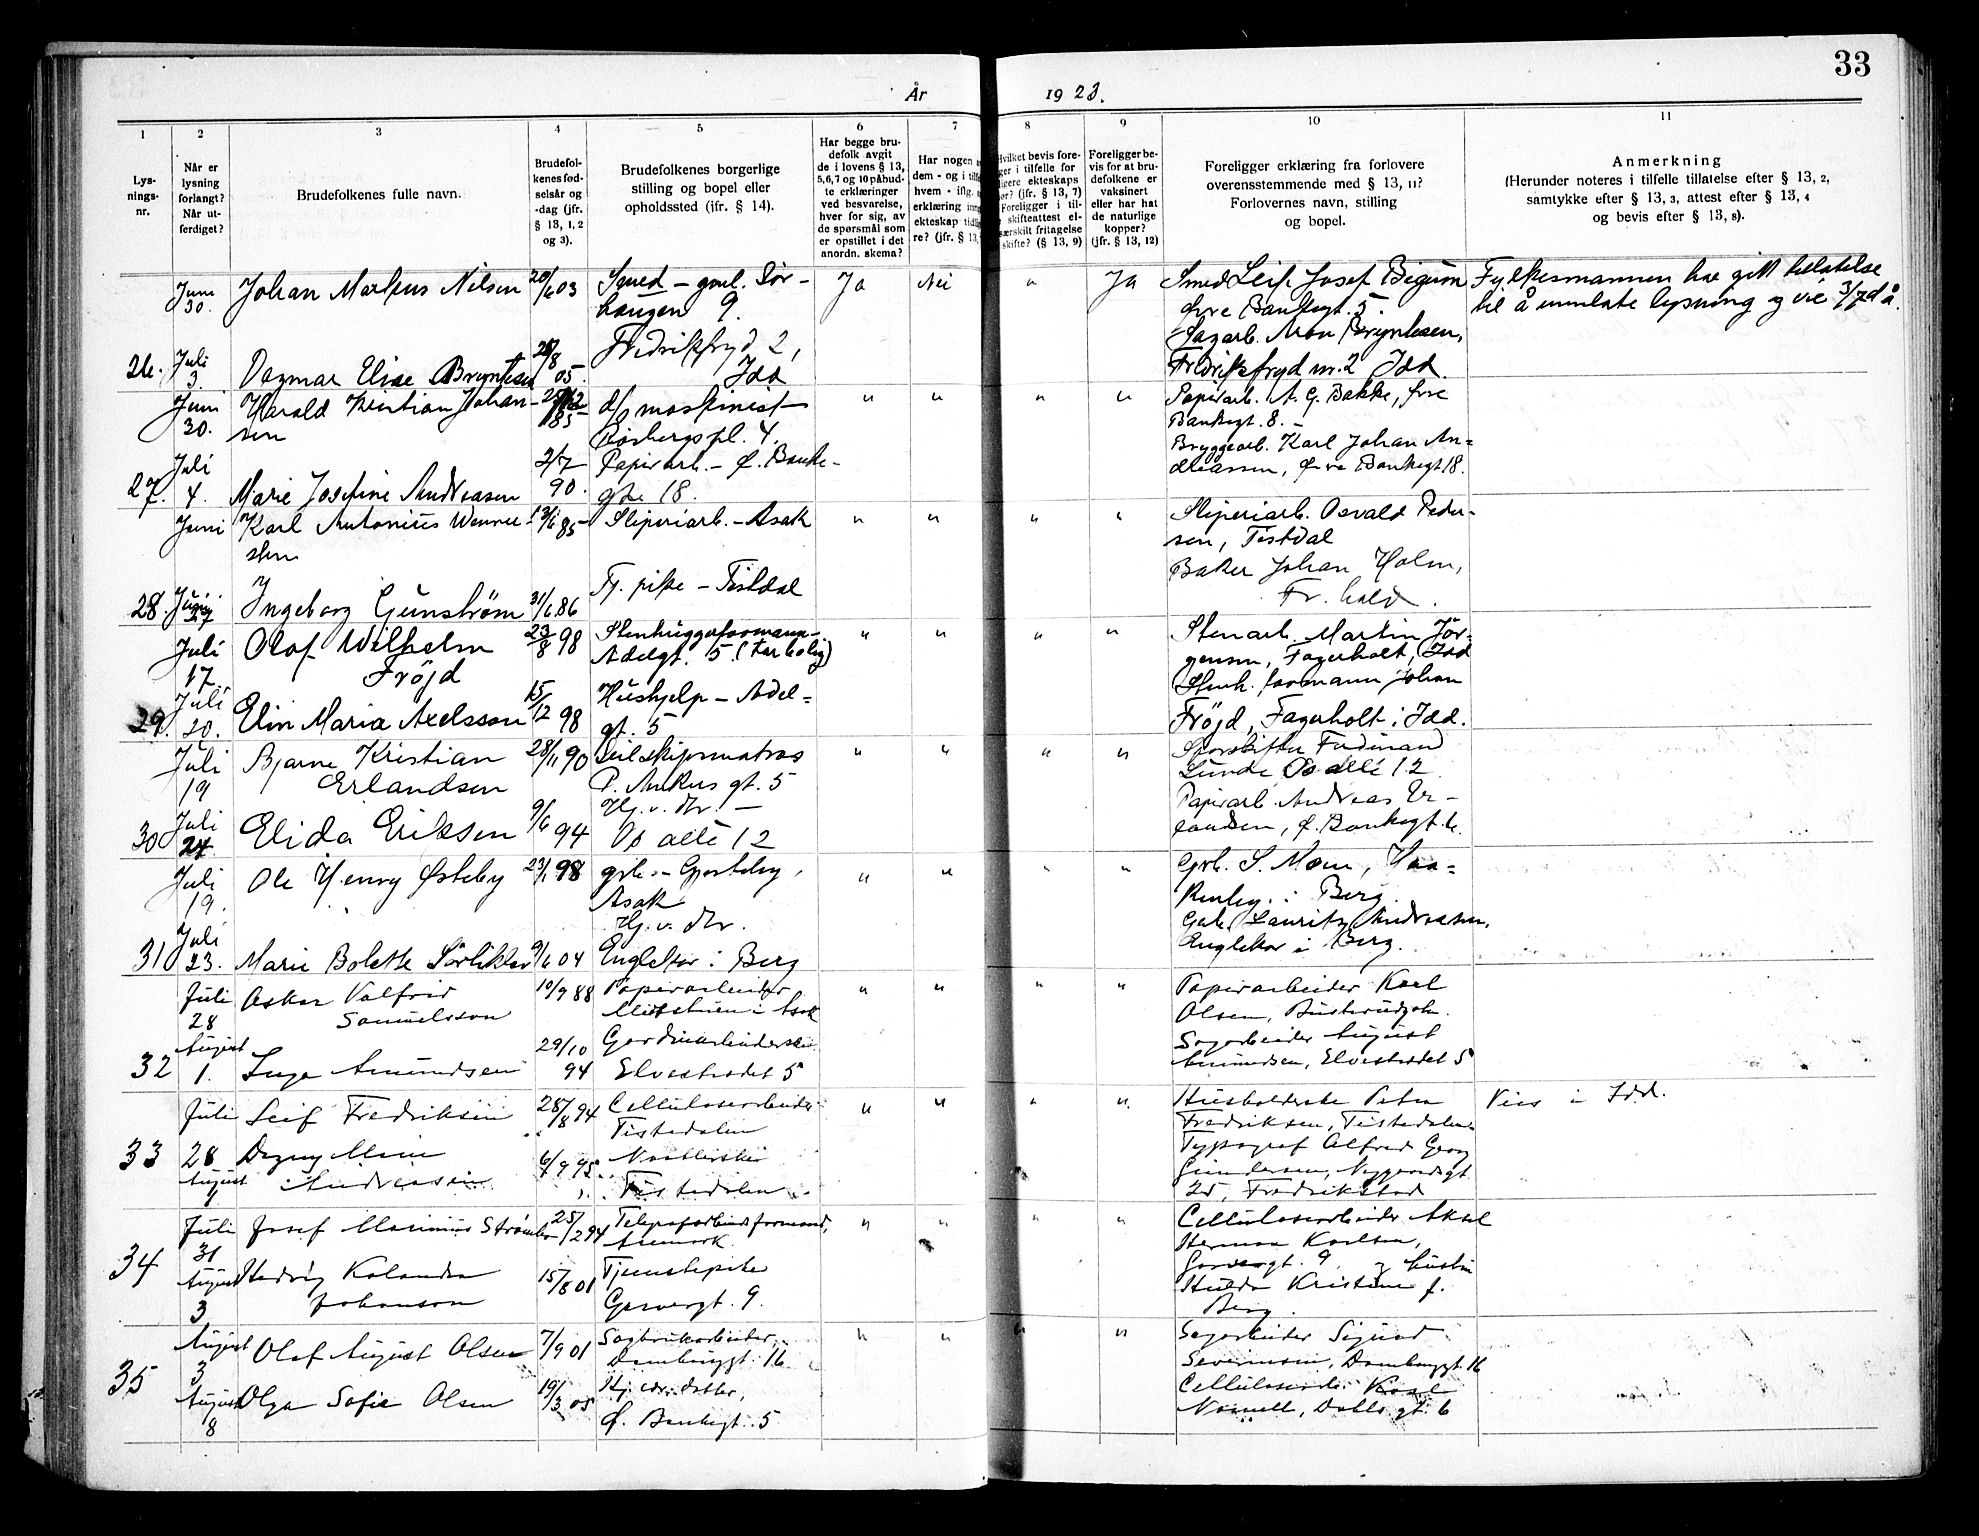 33
År 1923.
1 2 3 4 5 6 7 8 9 10 11
Lys-
nings-
nr.
Når er
lysning
forlangt?
Når ut-
ferdiget?
Brudefolkenes fulle navn.
Brudefol-
kenes fød-
selsår og
-dag (jfr.
§ 13, 1, 2
og 3).
Brudefolkenes borgerlige
stilling og bopel eller
opholdssted (ifr. § 14).
Har begge bru-
defolk avgit
de i lovens § 13,
5, 6, 7 og 10 påbud-
te erklæringer
ved besvarelse,
hver for sig, av
de spørsmål som
er opstillet i det
anordn. skema?
Har nogen
dem - og i
hvem - iflg.
erklæring
ekteskap
re? (jfr. § 13,
Hvilket bevis fore-
ger i tilfelle for
ligere ekteskaps
(jfr. § 13, 7)
Foreligger i til-
skifteattest el-
særskilt fritagelse
skifte? (§ 13, 9)
Foreligger be-
vis for at bru-
defolkene er
vaksinert
eller har hat
de naturlige
kopper?
(jfr. § 13, 12)
Foreligger erklæring fra forlovere
overensstemmende med § 13, 11?
Forlovernes navn, stilling
og bopel.
Anmerkning
(Herunder noteres i tilfelle tillatelse efter § 13, 2,
samtykke efter § 13, 3, attest efter § 13, 4
og bevis efter § 13, 8).
Juni 30. Johan Markus Nilsen 20/6 03 Smed - gml. Sør-
haugen 9. Ja Nei " Ja
Smed Leif Josef Bigum
øvre Bankegt. 5.
Sagarb. Aron Bryntesen,
Fredriksfryd nr. 2 Idd.
Fylkesmannen har gitt tilatelse
til å unnlate lysning og vie 3/7 d.å.
26. Juli 3. Dagmar Elise Bryntesen 28/8 05. Fredriksfryd 2,
Idd
Juni 30. Harald Kristian Johan-
sen 85 d/s maskinest
Røsbergspl. 4. " " " "
Papirarb. A. G. Bakke, øvre
Bankegt. 8. -
Bryggearb. Karl Johan An-
dreassen, Øvre Bankegt 18.
27. Juli 4. Marie Josefine Andreasen 2/7 90. Papirarb. - Ø. Banke-
gte 18.
Juni Karl Antonius Wenner-
sten 13/6 85 Sliperiarb. - Asak " " " "
Sliperiarb. Osvald Peder-
sen, Tistdal
Baker Johan Holm,
Fr.hald.
28. Ingeborg Gunström 31/6 86 Tj. pike - Tistdal
Juli 17. Olaf Wilhelm
Fröjd 23/8 98 Stenhuggerformann-
Adelgt. 5. " " " "
Stenarb. Martin Jør-
gensen, Fagerholt, Idd
Stenh. formann Johan
Fröjd, Fagerholt i Idd.
29. Juli 20. Elin Maria Axelsson 15/12 98 Hushjelp - Adel-
gt. 5
Juli 19 Bjarne Kristian
Erlandsen 28/11 90 Seilskipsmatros
P. Ankers gt. 5 " " " "
Ferdinand
Lunde Os allé 12
Papirarb. Andreas Er-
landsen, Ø. Bankegt. 6.
30 Juli 24. Elida Eriksen 9/6 94 Hj. v. dtr. -
Os allé 12
Juli 19. Ole Henry Østeby 23/1 98 grb. -
Asak " " " "
Grb. S. Moen,
i Berg.
Gbr. Lauritz Andreasen,
Englekor i Berg.
31 Juli 23. Marie Bolette Sørlikler 9/6 04 Hj. v. dtr.
Englekor i Berg
Juli 28 Oskar Valfrid
Samuelsson 10/9 88 Papirarbeider
i Asak " " " "
Papirarbeider Karl
Olsen,
Sagarbeider August
Amundsen, Elvestredet 5
32 August 1. Inga Amundsen 29/10 94 Gardinarbeiderske
Elvestredet 5
Juli 28 Leif Fredriksen 28/8 94 Cellulosearbeider
Tistedalen " " " "
Husholderske Petra
Fredriksen, Tistedalen
Typograf Alfred Georg
Gundersen, Nygaardsgt
25, Fredrikstad
Vies i Idd.
33 August 1 Dagny
Andreasen 6/9 95
Tistedalen
Juli 31 Josef Marinius Strømber 25/2 94 Telegrafarbeidsformand,
Aremark " " " "
Cellulosearbeider Aksel
Herman Karlsen,
Garvergt. 9. og hustru
Hulda Kristine f.
Berg.
34 August 3 Hedvig Kolanda
Johanson 15/8 01 Tjenestepike
Garvergt. 9.
August 3 Olaf August Olsen 7/9 01 Sagbruksarbeider,
Dambryggt. 16 " " " "
Sagarbeider Sigurd
Severinsen, Dambryggt 16
Cellulosearb. Karl
Normell, Dahls gt. 6
35 August 8 Olga Sofie Olsen 19/3 05 Hj. vær. datter,
Ø. Bankegt. 5